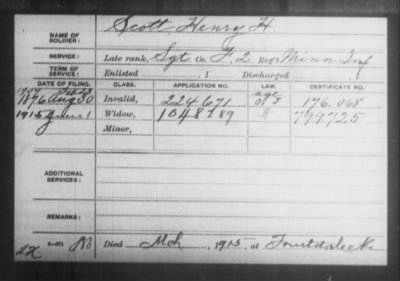 NAME OF SOLDIER: Scott, Henry H.
SERVICE: Late rank, Sgt Co. F, 2 Reg't Minn Inf
TERM OF SERVICE: Enlisted , 1 Discharged
DATE OF FILING. CLASS. APPLICATION NO. LAW. CERTIFICATE NO.
age
1876 Aug 30 Invalid, 224.671 176.068
1915 June 1 Widow, 1048789 799725
Minor,
ADDITIONAL SERVICES:
REMARKS:
Died Mch , 1915, at